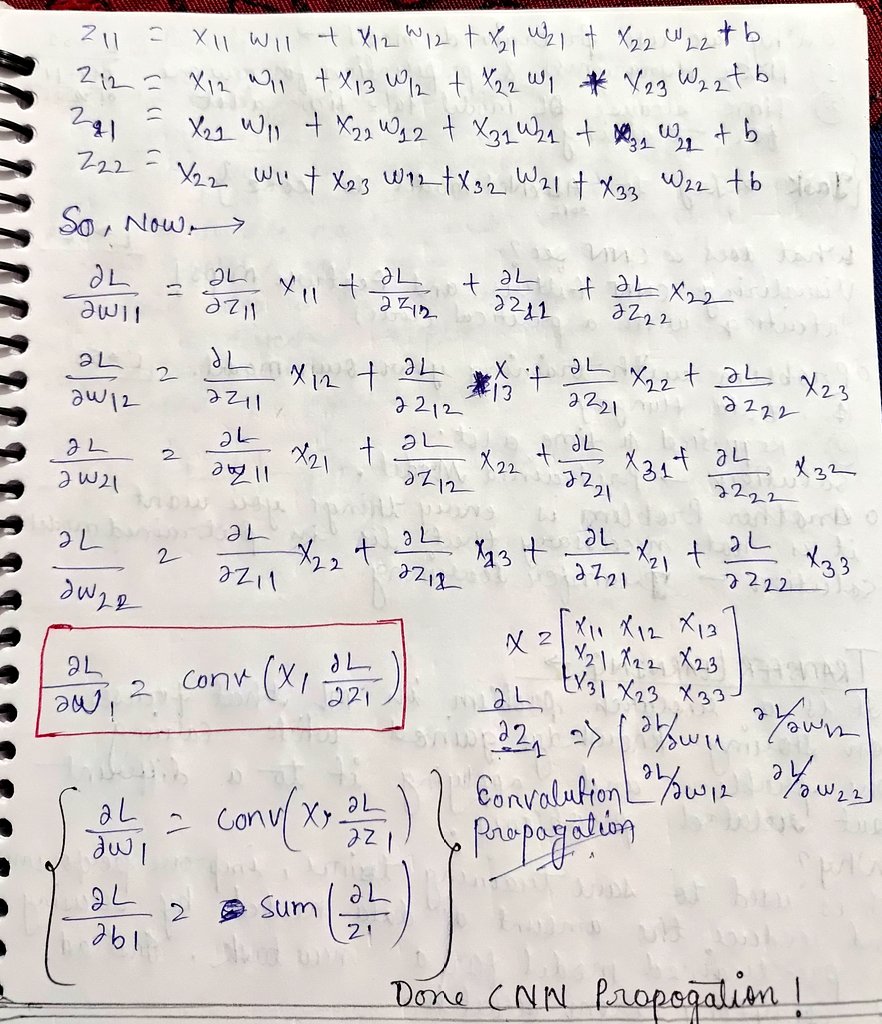 Z11 = X11 W11 + X12 W12 + X21 W21 + X22 W22 + b
Z12 = X12 W11 + X13 W12 + X22 W1 * X23 W22 + b
Z21 = X21 W11 + X22 W12 + X31 W21 + X31 W22 + b
Z22 = X22 W11 + X23 W12 + X32 W21 + X33 W22 + b
So, Now. →
∂L/∂W11 = ∂L/∂Z11 X11 + ∂L/∂Z12 + ∂L/∂Z11 + ∂L/∂Z22 X22
∂L/∂W12 = ∂L/∂Z11 X12 + ∂L/∂Z12 X13 + ∂L/∂Z21 X22 + ∂L/∂Z22 X23
∂L/∂W21 = ∂L/∂Z11 X21 + ∂L/∂Z12 X22 + ∂L/∂Z21 X31 + ∂L/∂Z22 X32
∂L/∂W22 = ∂L/∂Z11 X22 + ∂L/∂Z12 X23 + ∂L/∂Z21 X21 + ∂L/∂Z22 X33
∂L/∂W1 = conv(X, ∂L/∂Z1)
X = [X11 X12 X13
X21 X22 X23
X31 X23 X33]
∂L/∂Z1 => [∂L/∂W11 ∂L/∂W12
∂L/∂W12 ∂L/∂W22]
{ ∂L/∂W1 = conv(X, ∂L/∂Z1)
∂L/∂b1 = sum(∂L/Z1) }
Convalution
Propagation
Done CNN Propogation!